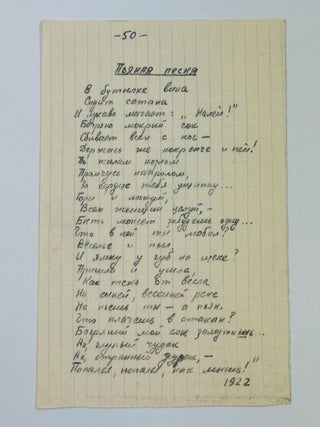 -50-
Пьяная песня
В бутылке вина
Сидит сатана
И лукаво мигает: „Налей!"
Багряно мокрый сок
Сбивает всех с ног –
Держись же покрепче и пей!
По жилам кругом
Промчусь
За сердце тебя ущипну...
Гори и
Всех женщин целуй, –
Быть может забудешь одну...
Что в ней ты любил?
Веселье и пыл,
И ямку у губ на щеке?
Пришла и ушла,
Как тень от весла
На синей, весенней реке
Не песни ты – а пьян.
Что плачешь в стакан?
Багряный мой сок замутишь...
Ах, глупый чудак
Ах, странный дурак, –
Попался, попался, как мышь!"
1922